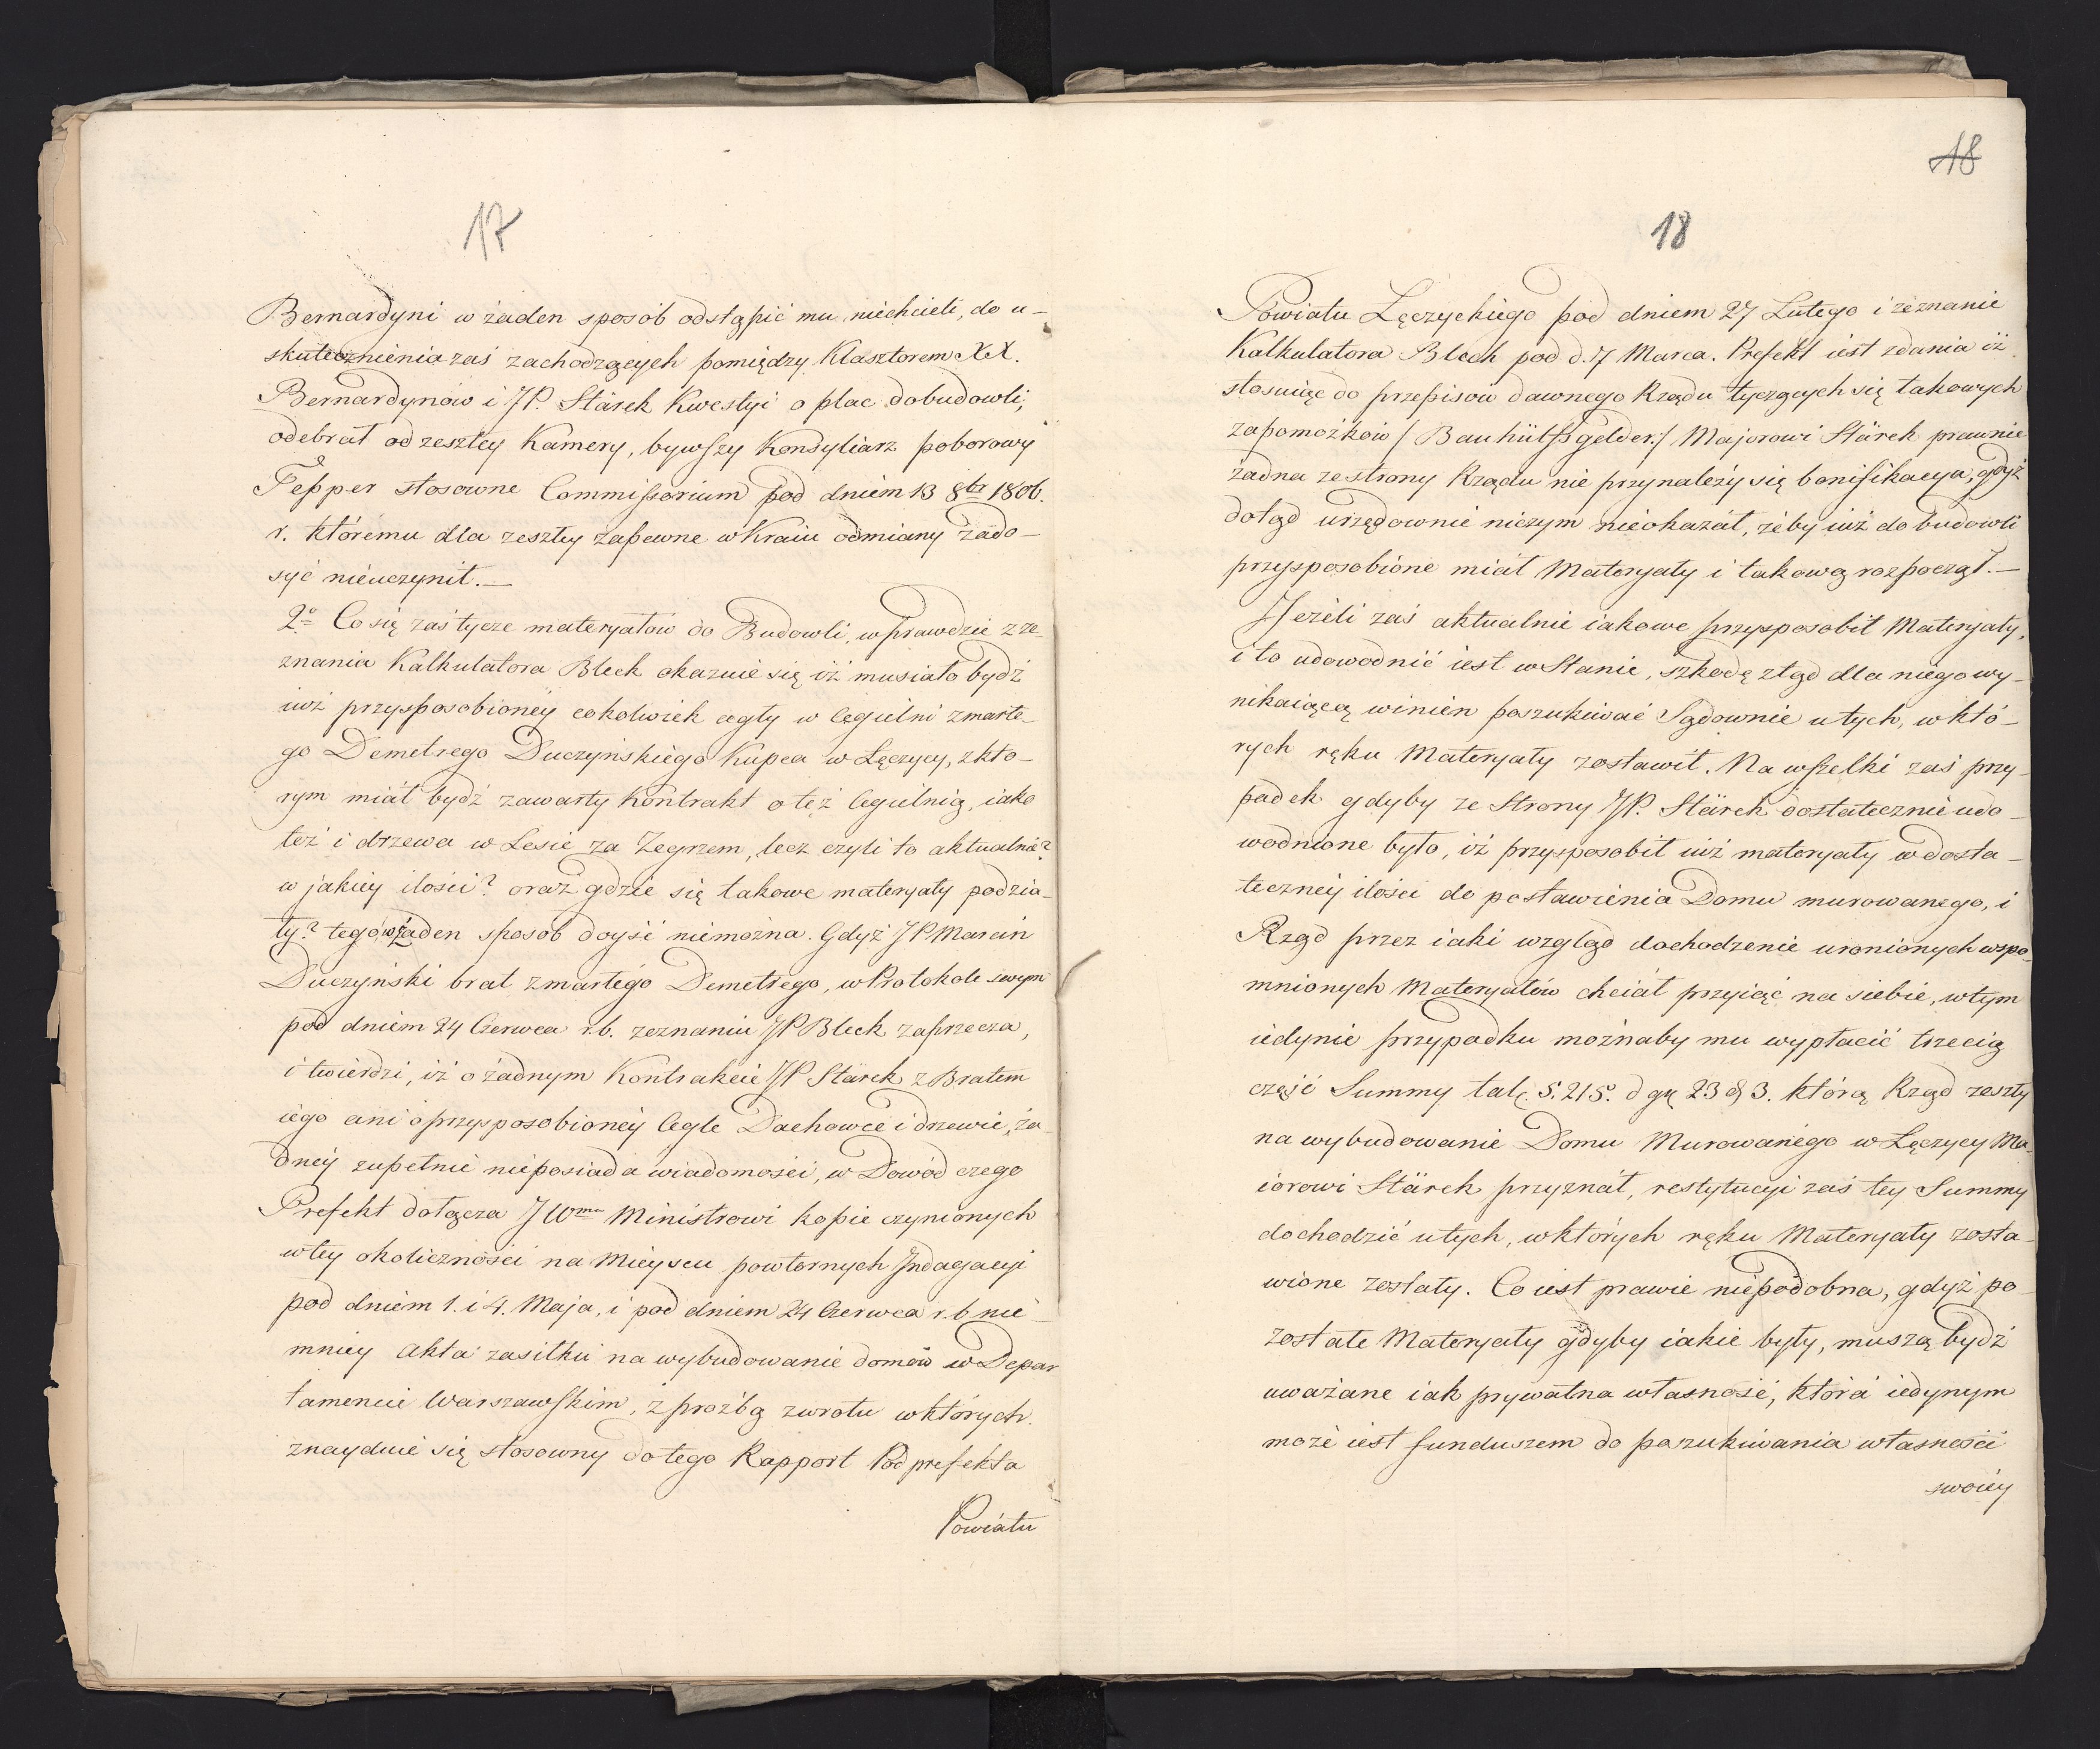 17
Bernardyni w żaden sposób odstąpić mu niechcieli, do u-
skutecznienia zaś zachodzących pomiędzy Klasztorem XX.
Bernardynów i JP. Stärck Kwestyi o plac do budowli,
odebrał od zeszłey Kamery, bywszy Konsyliarz poborowy
Tepper stosowne Commissorium pod dniem 13 8br 1806.
r. któremu dla zeszłey zapewne w Kraiu odmiany zado-
syć nieuczynił.—
2o Co się zaś tycze materyałow do Budowli, wprawdzie z ze-
znania Kalkulatora Bleck okazuie się iż musiało bydź
iuż przysposobioney cokolwiek cegły w Cegielni zmarłe-
go Demetrego Duczyńskiego Kupca w Łęczycy, z któ-
rym miał bydź zawarty Kontrakt o też Cegielnią, iako
też i drzewa w Lesie za Zegrzem, lecz czyli to aktualnie?
w jakiey ilości? oraz gdzie się takowe materyały podzia-
ły? tego w żaden sposób doyść niemożna. Gdyż JP. Marcin
Duczyński brat zmarłego Demetrego, w Protokole swym
pod dniem 24 Czerwca r.b. zeznaniu JP Bleck zaprzecza,
i twierdzi, iż o żadnym Kontrakcie JP Stärck z Bratem
iego ani o przysposobioney Cegle Dachowce i drzewie, ża-
dney zupełnie nieposiada wiadomości, w Dowód czego
Prefekt dołącza JWmu Ministrowi kopie czynionych
w tey okoliczności na Mieyscu powtornych Indagacyi
pod dniem 1. i 4. Maja, i pod dniem 24 Czerwca r.b nie-
mniey Akta zasiłku na wybudowanie domów w Depar
tamencie Warszawskim, z prozbą zwrotu w których
znayduie się stosowny do tego Rapport Podprefekta
Powiatu
18
18
Powiatu Łęczyckiego pod dniem 27 Lutego i zeznanie
Kalkulatora Bleck pod d. 7 Marca. Prefekt iest zdania iż
stosuiąc do przepisow dawnego Rządu tyczących się takowych
zapomożków /Bauhülfsgelder:/ Majorowi Stärck prawnie
żadna ze strony Rządu nie przynależy się bonifikacya, gdyż
dotąd urzędownie niczym nieokazał, żeby iuż do budowli
przysposobione miał Materyały i takową rozpoczął.—
Jeżeli zaś aktualnie iakowe przysposobił Materyały,
i to udowodnić iest w Stanie, szkodę ztąd dla niego wy-
nikaiącą winien poszukiwać Sądownie u tych, w któ-
rych ręku Materyały zostawił. Na wszelki zaś przy-
padek gdyby ze Strony JP. Stärck dostatecznie udo-
wodnione było, iż przysposobił iuż materyały w dosta-
teczney ilości do postawienia Domu murowanego, i
Rząd przez iaki wzgląd dochodzenie uronionych wspo-
mnionych Materyałów chciał przyiąć na siebie, w tym
iedynie przypadku możnaby mu wypłacić trzecią
część Summy tal. 5.215. dgr 23 d 3. którą Rząd zeszły
na wybudowanie Domu Murowanego w Łęczycy Ma-
iorowi Stärck przyznał, restytucyi zaś tey Summy
dochodzić u tych, w których ręku Materyały zosta-
wione zostały. Co iest prawie niepodobna, gdyż po-
zostałe Materyały gdyby iakie były, muszą bydź
uważane iak prywatna własność, która iedynym
może iest funduszem do poszukiwania własności
swoiey